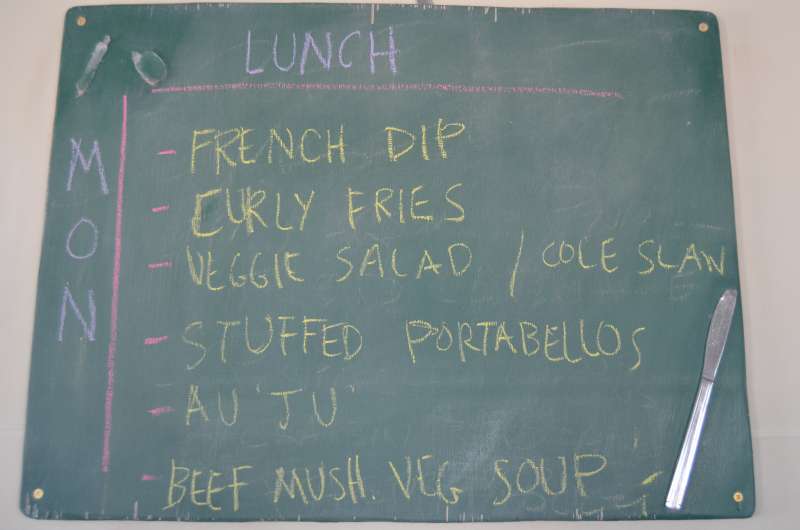 LUNCH
MON
- FRENCH DIP
- CURLY FRIES
- VEGGIE SALAD / COLE SLAW
- STUFFED PORTABELLOS
- AU 'JU'
- BEEF MUSH. VEG SOUP